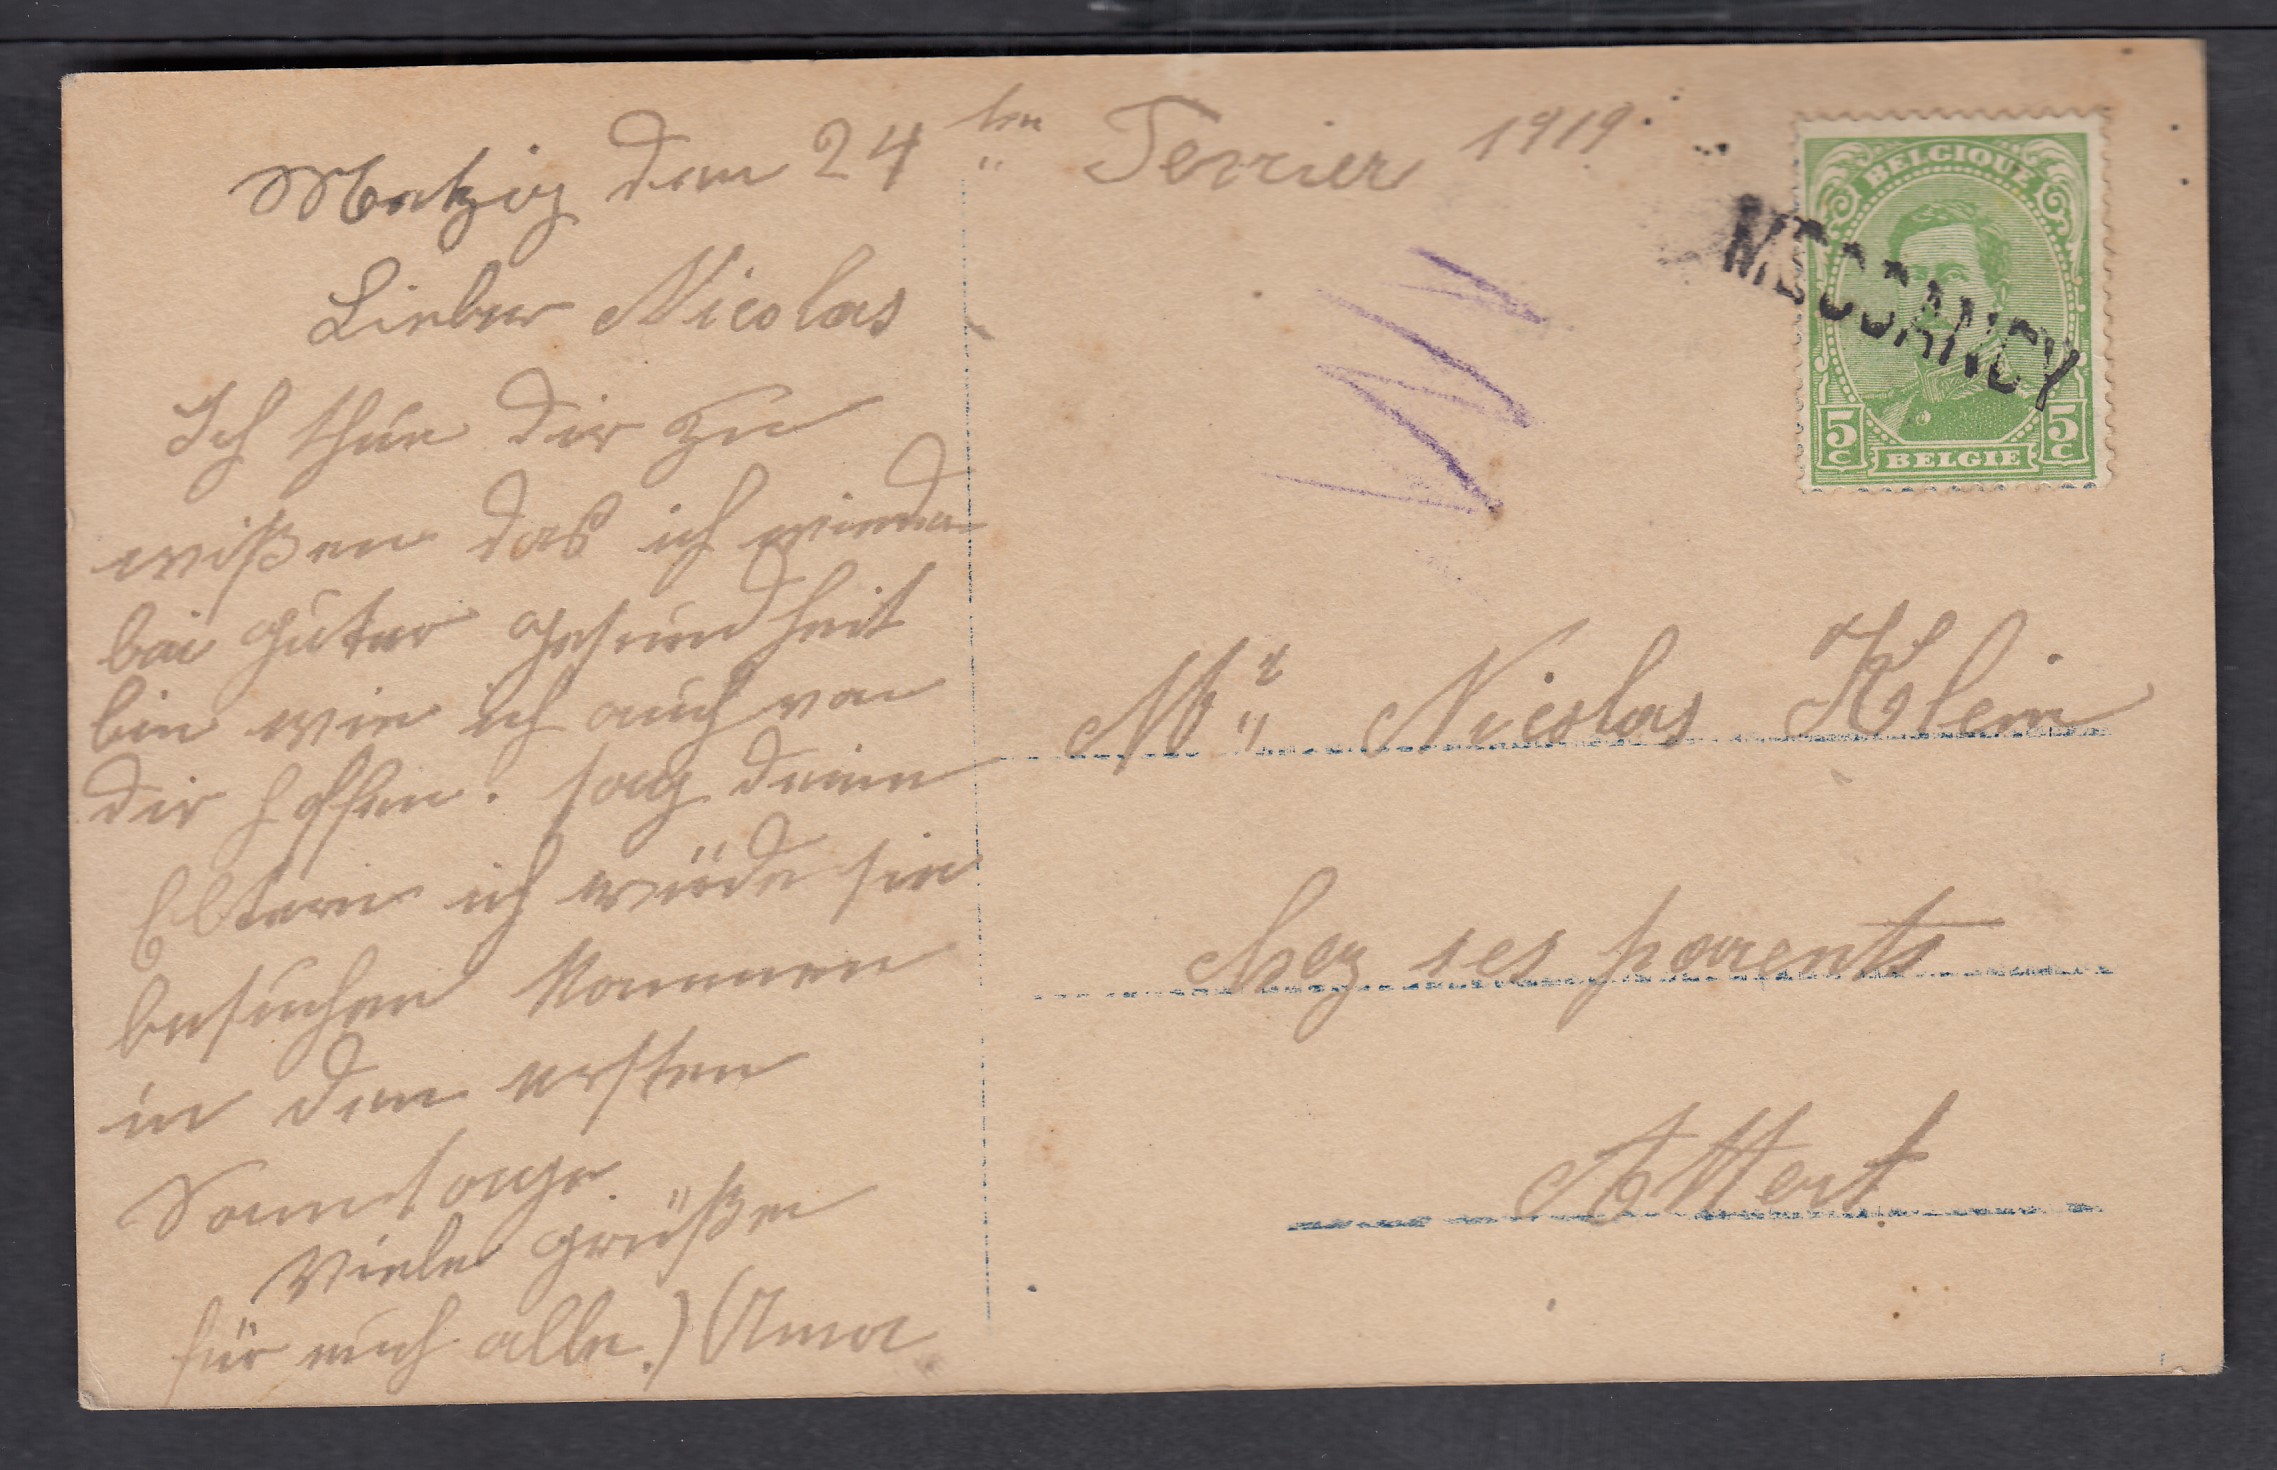 Metzig den 24ten Fevrier 1919.
Lieber Nicolas
Ich thue dir zu
wißen daß ich wieder
bei guter gesundheit
bin wie ich auch von
dir hoffen. sag deine
Eltern ich würde sie
besuchen kommen
in den ersten
Sonntage
Viele grüße
für euch alle.)
BELGIQUE
MESSANCY
5c 5c
BELGIE
Mr Nicolas Klein
chez ses parents
Attert